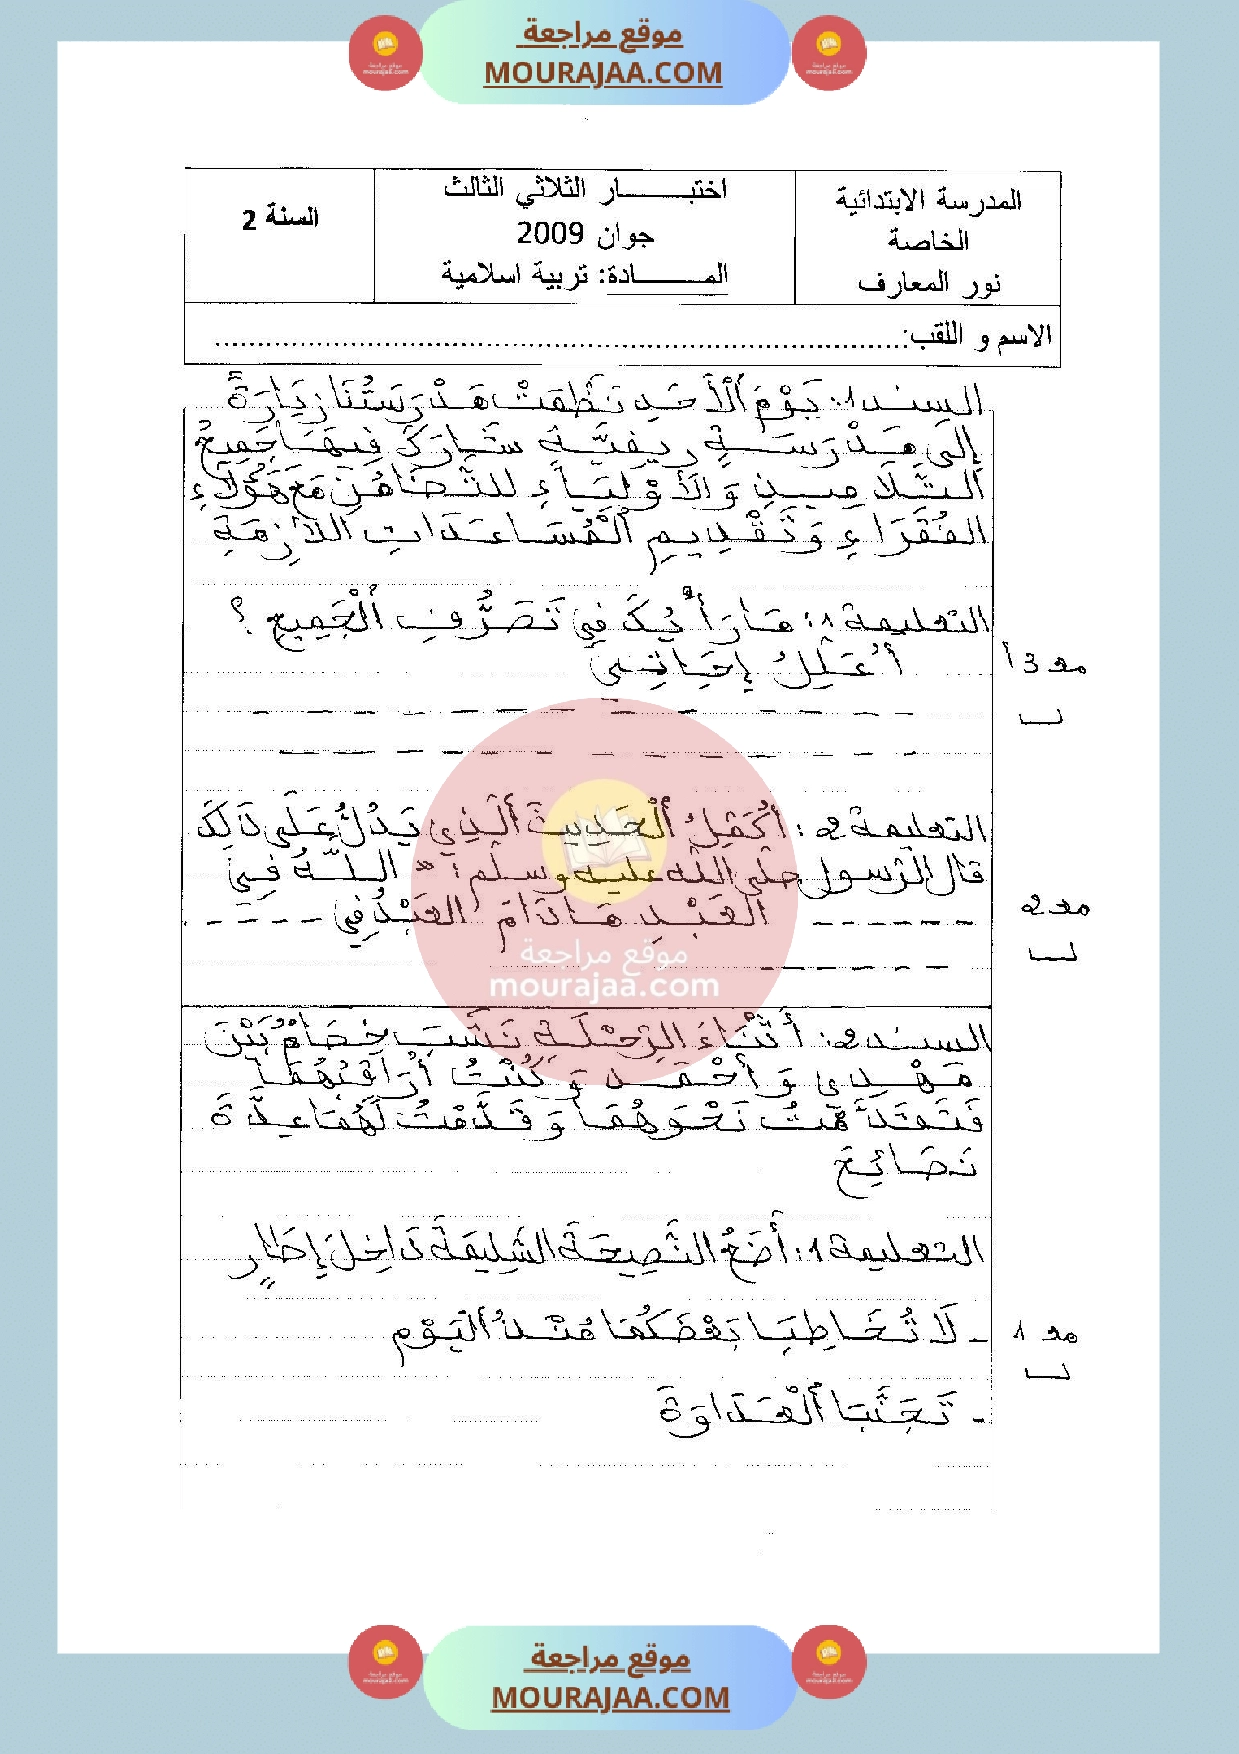 موقع مراجعة
MOURAJAA.COM
المدرسة الابتدائية
الخاصة
نور المعارف
اختبــــــــار الثلاثي الثالث
جوان 2009
المـــــــــادة: تربية اسلامية
السنة 2
الاسم و اللقب:................................................................................
السند 1: يَوْمَ الْأَحَدِ نَظَّمَتْ مَدْرَسَتُنَا زِيَارَةً
إِلَى مَدْرَسَةٍ رِيفِيَّةٍ شَارَكَ فِيهَا جَمِيعُ
التَّلَامِيذِ وَالأَوْلِيَاءِ لِلتَّضَامُنِ مَعَ هَؤُلَاءِ
الفُقَرَاءِ وَتَقْدِيمِ الْمُسَاعَدَاتِ اللَّازِمَةِ
التعليمة 1: مَا رَأْيُكَ فِي تَصَرُّفِ الْجَمِيعِ ؟
أُعَلِّلُ إِجَابَتِي
مع 3 أ
ب
التعليمة 2: أُكْمِلُ الْحَدِيثَ الَّذِي يَدُلُّ عَلَى ذَلِكَ
قال الرّسول صلى الله عليه وسلم: « اللَّهُ فِي
_ _ _ _ _ _ العَبْدِ مَا دَامَ العَبْدُ فِي _ _ _ _
مع 2
ب
السند 2: أَثْنَاءَ الرِّحْلَةِ نَشَبَ خِصَامٌ بَيْنَ
مَهْدِي وَ أَحْمَد وَ كُنْتُ أُرَاقِبُهُمَا
فَتَقَدَّمْتُ نَحْوَهُمَا وَ قَدَّمْتُ لَهُمَا عِدَّةَ
نَصَائِحَ
التعليمة 1: أَضَعُ النَّصِيحَةَ السَّلِيمَةَ دَاخِلَ إِطَارٍ
- لَا تُخَاطِبَا بَعْضَكُمَا مُنْذُ الْيَوْمِ
مع 1
ب
- تَجَنَّبَا الْعَدَاوَةَ
موقع مراجعة
mourajaa.com
موقع مراجعة
MOURAJAA.COM